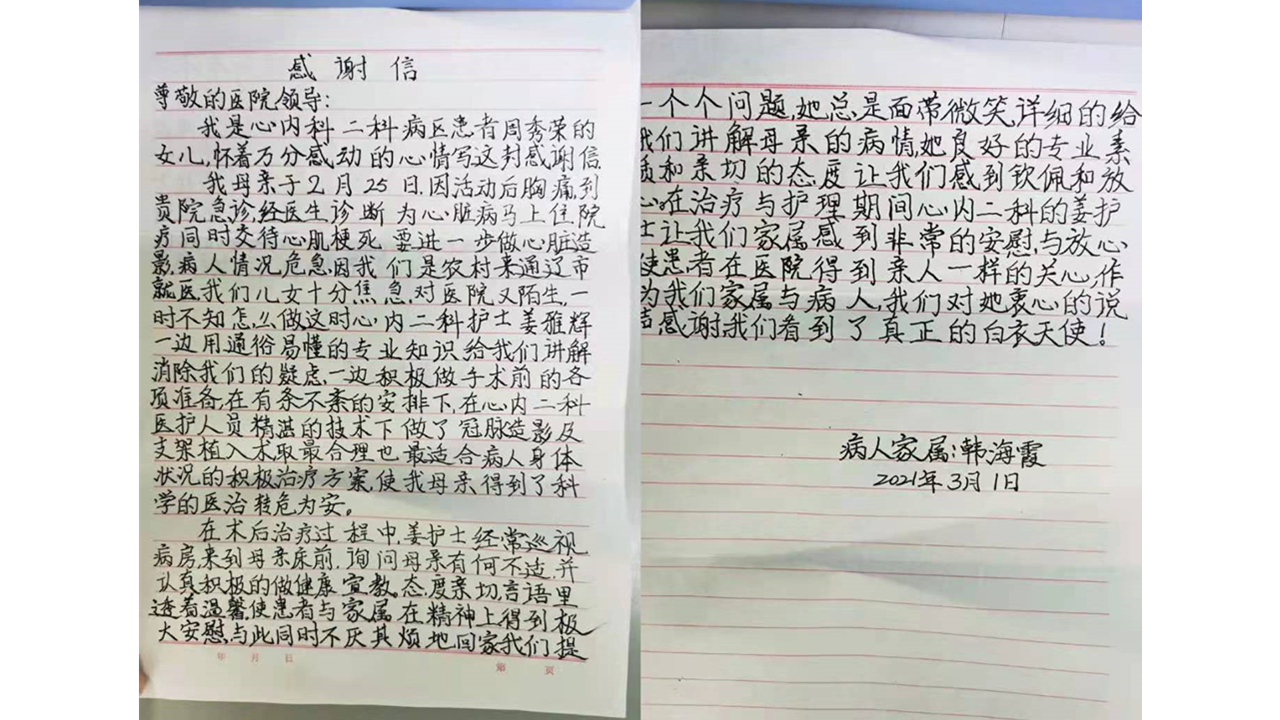 感谢信
尊敬的医院领导：
我是心内科二科病区患者周秀荣的
女儿，怀着万分感动的心情写这封感谢信
我母亲于2月25日，因活动后胸痛到
贵院急诊，经医生诊断为心脏病马上住院
疗同时交待心肌梗死，要进一步做心脏造
影，病人情况危急，因我们是农村来通辽市
就医，我们儿女十分焦急，对医院又陌生，一
时不知怎么做，这时心内二科护士姜雅辉
一边用通俗易懂的专业知识给我们讲解
消除我们的疑虑，一边积极做手术前的各
项准备，在有条不紊的安排下，在心内二科
医护人员精湛的技术下做了冠脉造影及
支架植入术取最合理也最适合病人身体
状况的积极治疗方案，使我母亲得到了科
学的医治转危为安。
在术后治疗过程中，姜护士经常巡视
病房，来到母亲床前，询问母亲有何不适，并
认真积极的做健康宣教。态度亲切，言语里
透着温馨，使患者与家属在精神上得到极
大安慰，与此同时不厌其烦地回家我们提
年 月 日 第 页
一个个问题，她总是面带微笑，详细的给
我们讲解母亲的病情，她良好的专业素
质和亲切的态度让我们感到钦佩和放
心。在治疗与护理期间心内二科的姜护
士让我们家属感到非常的安慰，与放心
使患者在医院得到亲人一样的关心，作
为我们家属与病人，我们对她衷心的说
声感谢，我们看到了真正的白衣天使！
病人家属：韩海霞
2021年3月1日